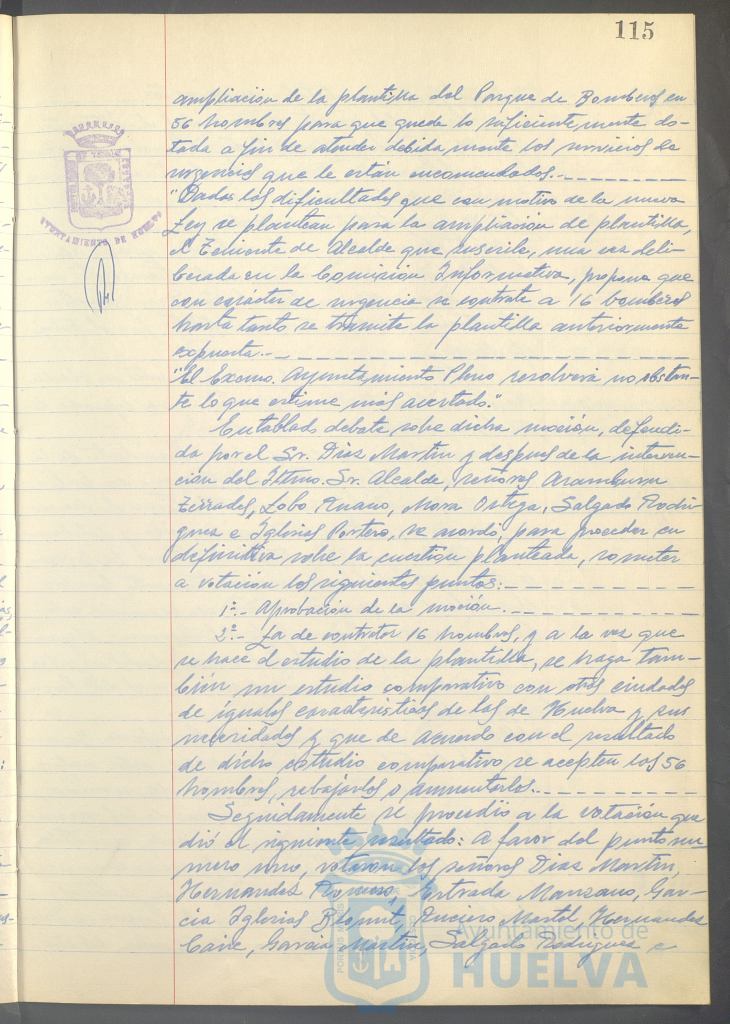 115
ampliación de la plantilla del Parque de Bomberos en
56 hombres para que quede lo suficientemente do-
tada a fin de atender debidamente los servicios de
urgencias que le están encomendados.-
"Dadas las dificultades que con motivo de la nueva
Ley se plantean para la ampliación de plantilla,
el Teniente de Alcalde que suscribe, una vez deli-
berada en la Comisión Informativa, propone que
con carácter de urgencia se contrate a 16 bomberos
hasta tanto se tramite la plantilla anteriormente
expuesta.-
"El Excmo. Ayuntamiento Pleno resolverá no obstan-
te lo que estime más acertado."
Entablado debate sobre dicha moción, defendi-
da por el Sr. Díaz Martín y después de la interven-
ción del Iltmo. Sr. Alcalde, señores Aramburu
Terrades, Lobo, Mora Ortega, Salgado Rodrí-
guez e Iglesias Portero, se acordó, para proceder en
definitiva sobre la cuestión planteada, someter
a votación los siguientes puntos:-
1º.- Aprobación de la moción.-
2º.- La de contratar 16 hombres, y a la vez que
se hace el estudio de la plantilla, se haga tam-
bién un estudio comparativo con otras ciudades
de iguales características de las de Huelva y sus
necesidades y que de acuerdo con el resultado
de dicho estudio comparativo se acepten los 56
hombres, rebajarlos o aumentarlos.-
Seguidamente se procedió a la votación que
dió el siguiente resultado: A favor del punto nú-
mero uno, votaron los señores Díaz Martín,
Hernández Romero, Estrada Manzano, Gar-
cía Iglesias, Enciero Martel, Hernández
Caire, García Martín, Salgado Rodríguez e
AYUNTAMIENTO DE HUELVA
Ayuntamiento de
HUELVA